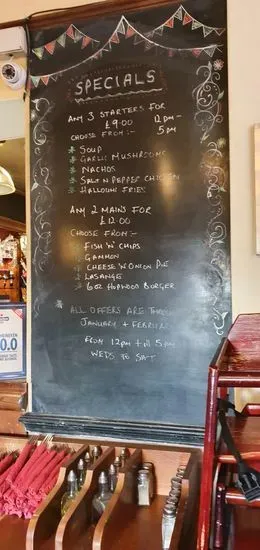 SPECIALS
ANY 3 STARTERS FOR
£9.00 12pm -
CHOOSE FROM :- 5pm
* SOUP
* GARLIC MUSHROOMS
* NACHOS
* SALT N PEPPER CHICKEN
* HALLOUMI FRIES
ANY 2 MAINS FOR
£12.00
CHOOSE FROM :-
FISH 'N' CHIPS
GAMMON
* CHEESE 'N' ONION PIE
* LASANGE
* 6oz HOPWOOD BURGER
* ALL OFFERS ARE THRU
JANUARY + FEBRUARY
FROM 12pm till 5pm
WEDS TO SAT
0.0